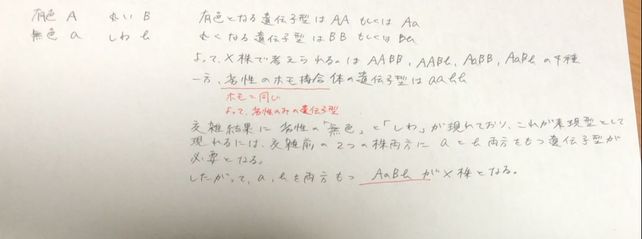 有色 A 丸い B
無色 a しわ b
有色となる遺伝子型は AA もしくは Aa
丸くなる遺伝子型は BB もしくは Bb
よって、X株で考えられるのは AABB, AABb, AaBB, AaBb の4種
一方、劣性のホモ接合体の遺伝子型は aabb
ホモ＝同じ
よって、劣性のみの遺伝子型
交雑結果に劣性の「無色」と「しわ」が現れており、これが表現型として
現れるには、交雑前の2つの株両方に a と b 両方をもつ遺伝子型が
必要となる。
したがって、a, b を両方もつ AaBb が X株となる。